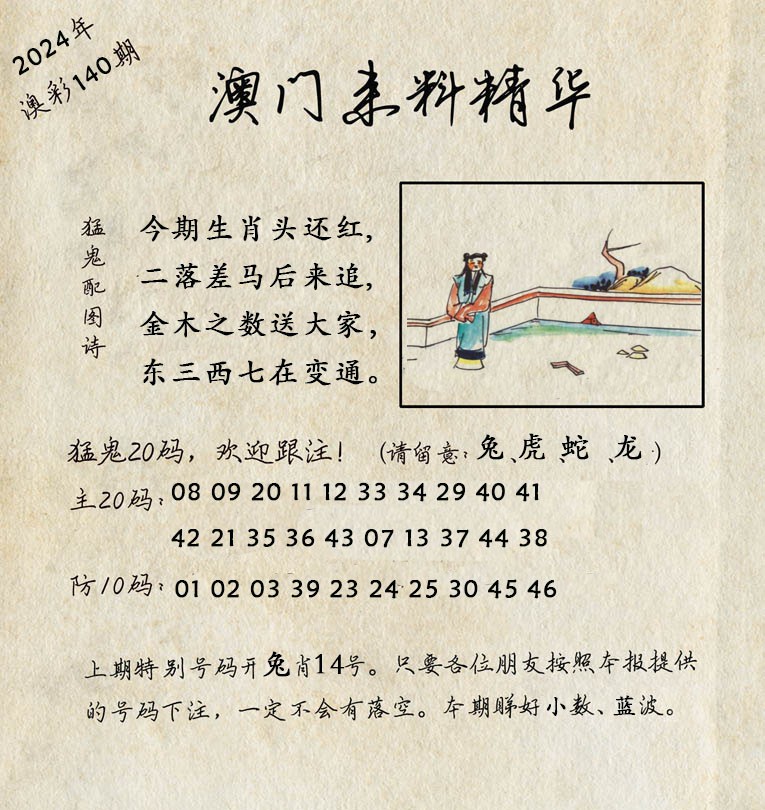 2024年
澳彩140期
澳门来料精华
猛鬼配图诗
今期生肖头还红，
二落差马后来追，
金木之数送大家，
东三西七在变通。
猛鬼20码，欢迎跟注！（请留意：兔、虎、蛇、龙）
主20码：08 09 20 11 12 33 34 29 40 41
42 21 35 36 43 07 13 37 44 38
防10码：01 02 03 39 23 24 25 30 45 46
上期特别号码开兔肖14号。只要各位朋友按照本报提供
的号码下注，一定不会有落空。本期睇好小数、蓝波。